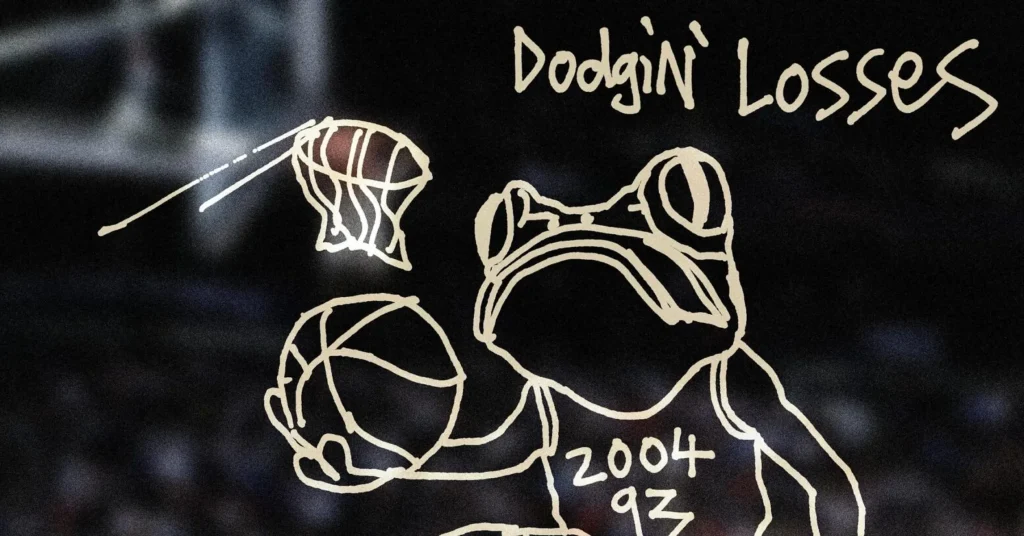 Dodgin' Losses
2004
93